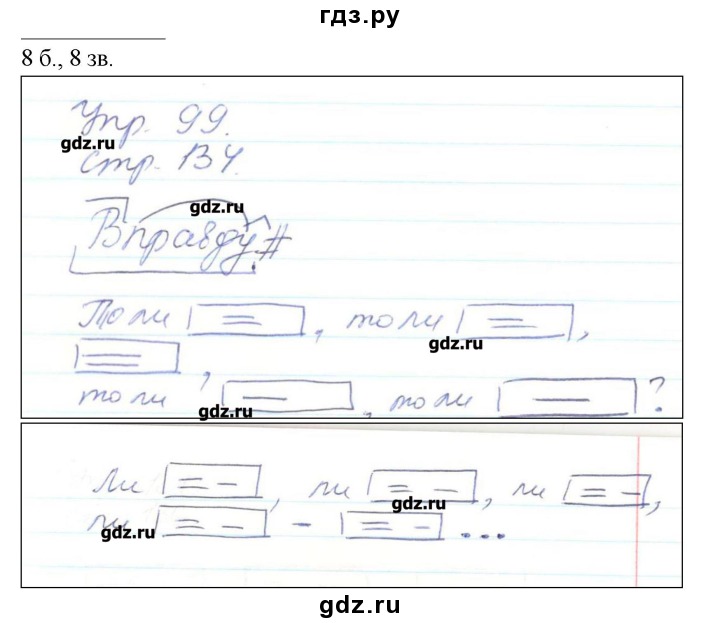 гдз.ру
8 б., 8 зв.
Упр. 99.
gdz.ru
стр. 134.
gdz.ru
Вправду#
То ли , то ли ,
gdz.ru
,
то ли , то ли ?
gdz.ru
Ли , ли , ли ,
gdz.ru
ли - ...
gdz.ru
gdz.ru